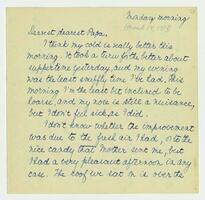 Sunday morning
Dearest dearest Papa.
I think my cold is really better this
morning. It took a turn for the better about
suppertime yesterday, and my evening
was the least snuffly time I've had. This
morning I'm the least bit inclined to be
hoarse, and my nose is still a nuisance,
but I don't feel sick, as I did.
I don't know whether the improvement
was due to the fresh air I had, or to the
nice candy that Mother sent me, but
I had a very pleasant afternoon in any
case. The roof we sat on is over the